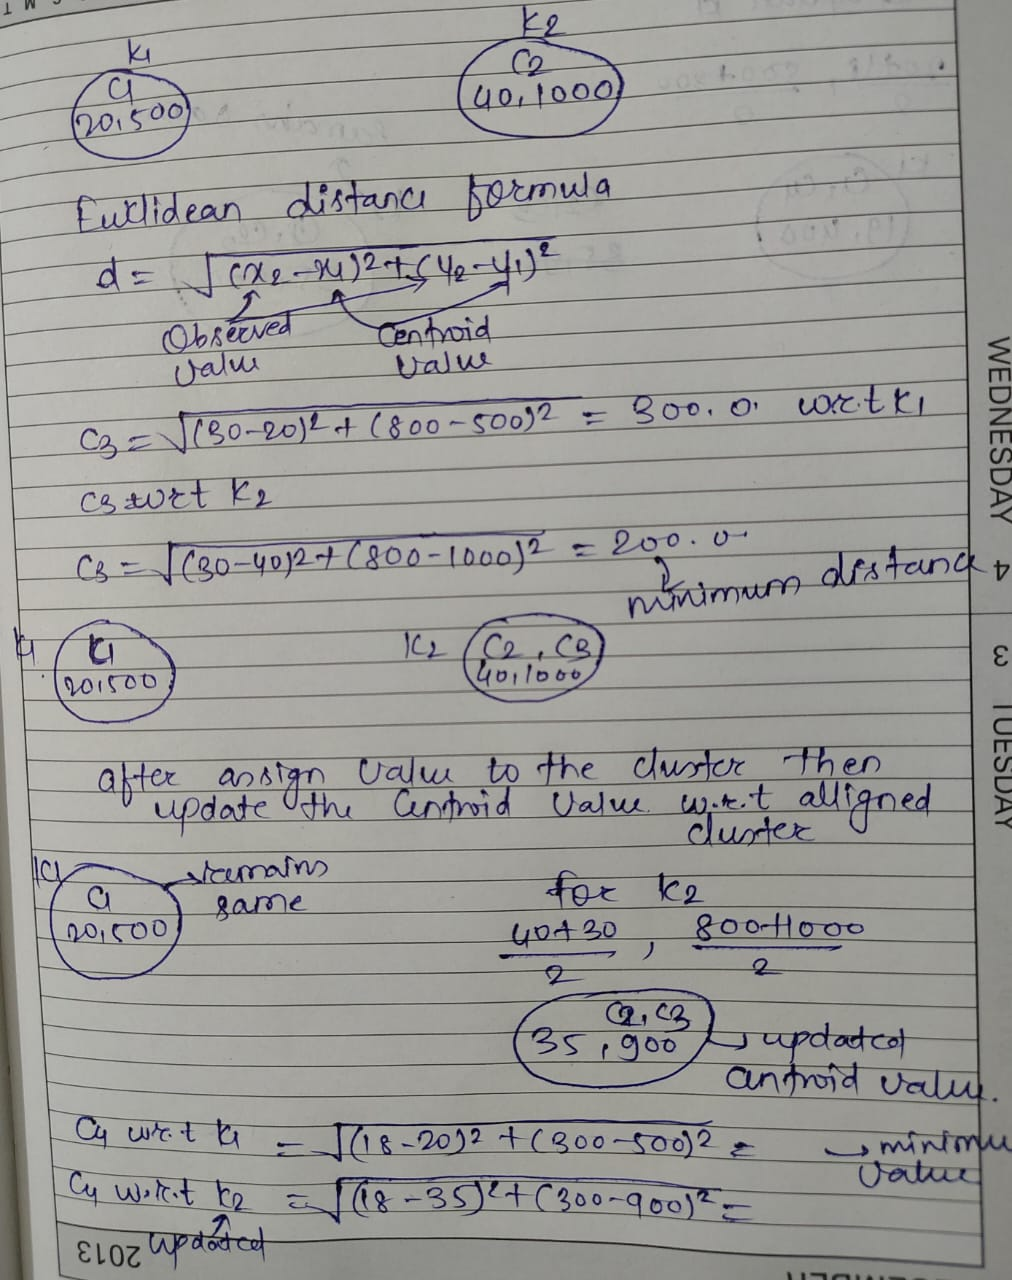 K1
K2
C1
20,500
C2
40,1000
Euclidean distance formula
d = √(x2-x1)2+(y2-y1)2
Observed value
Centroid value
C3 = √(30-20)2 + (800-500)2 = 300.0. w.r.t K1
C3 wrt K2
C3 = √(30-40)2+(800-1000)2 = 200.0.
minimum distance
K1
20,500
K2
C2, C3
40,1000
after assign value to the cluster then
update the centroid value w.r.t alligned
cluster
K1
C1
20,500
remains
same
for K2
40+30 / 2 , 800+1000 / 2
C2, C3
35, 900
updated
centroid value.
C4 wr.t K1 = √(18-20)2 + (300-500)2 =
→ minimu
value
C4 w.r.t K2 = √(18-35)2+(300-900)2 =
updated
2013
WEDNESDAY 4
3 TUESDAY